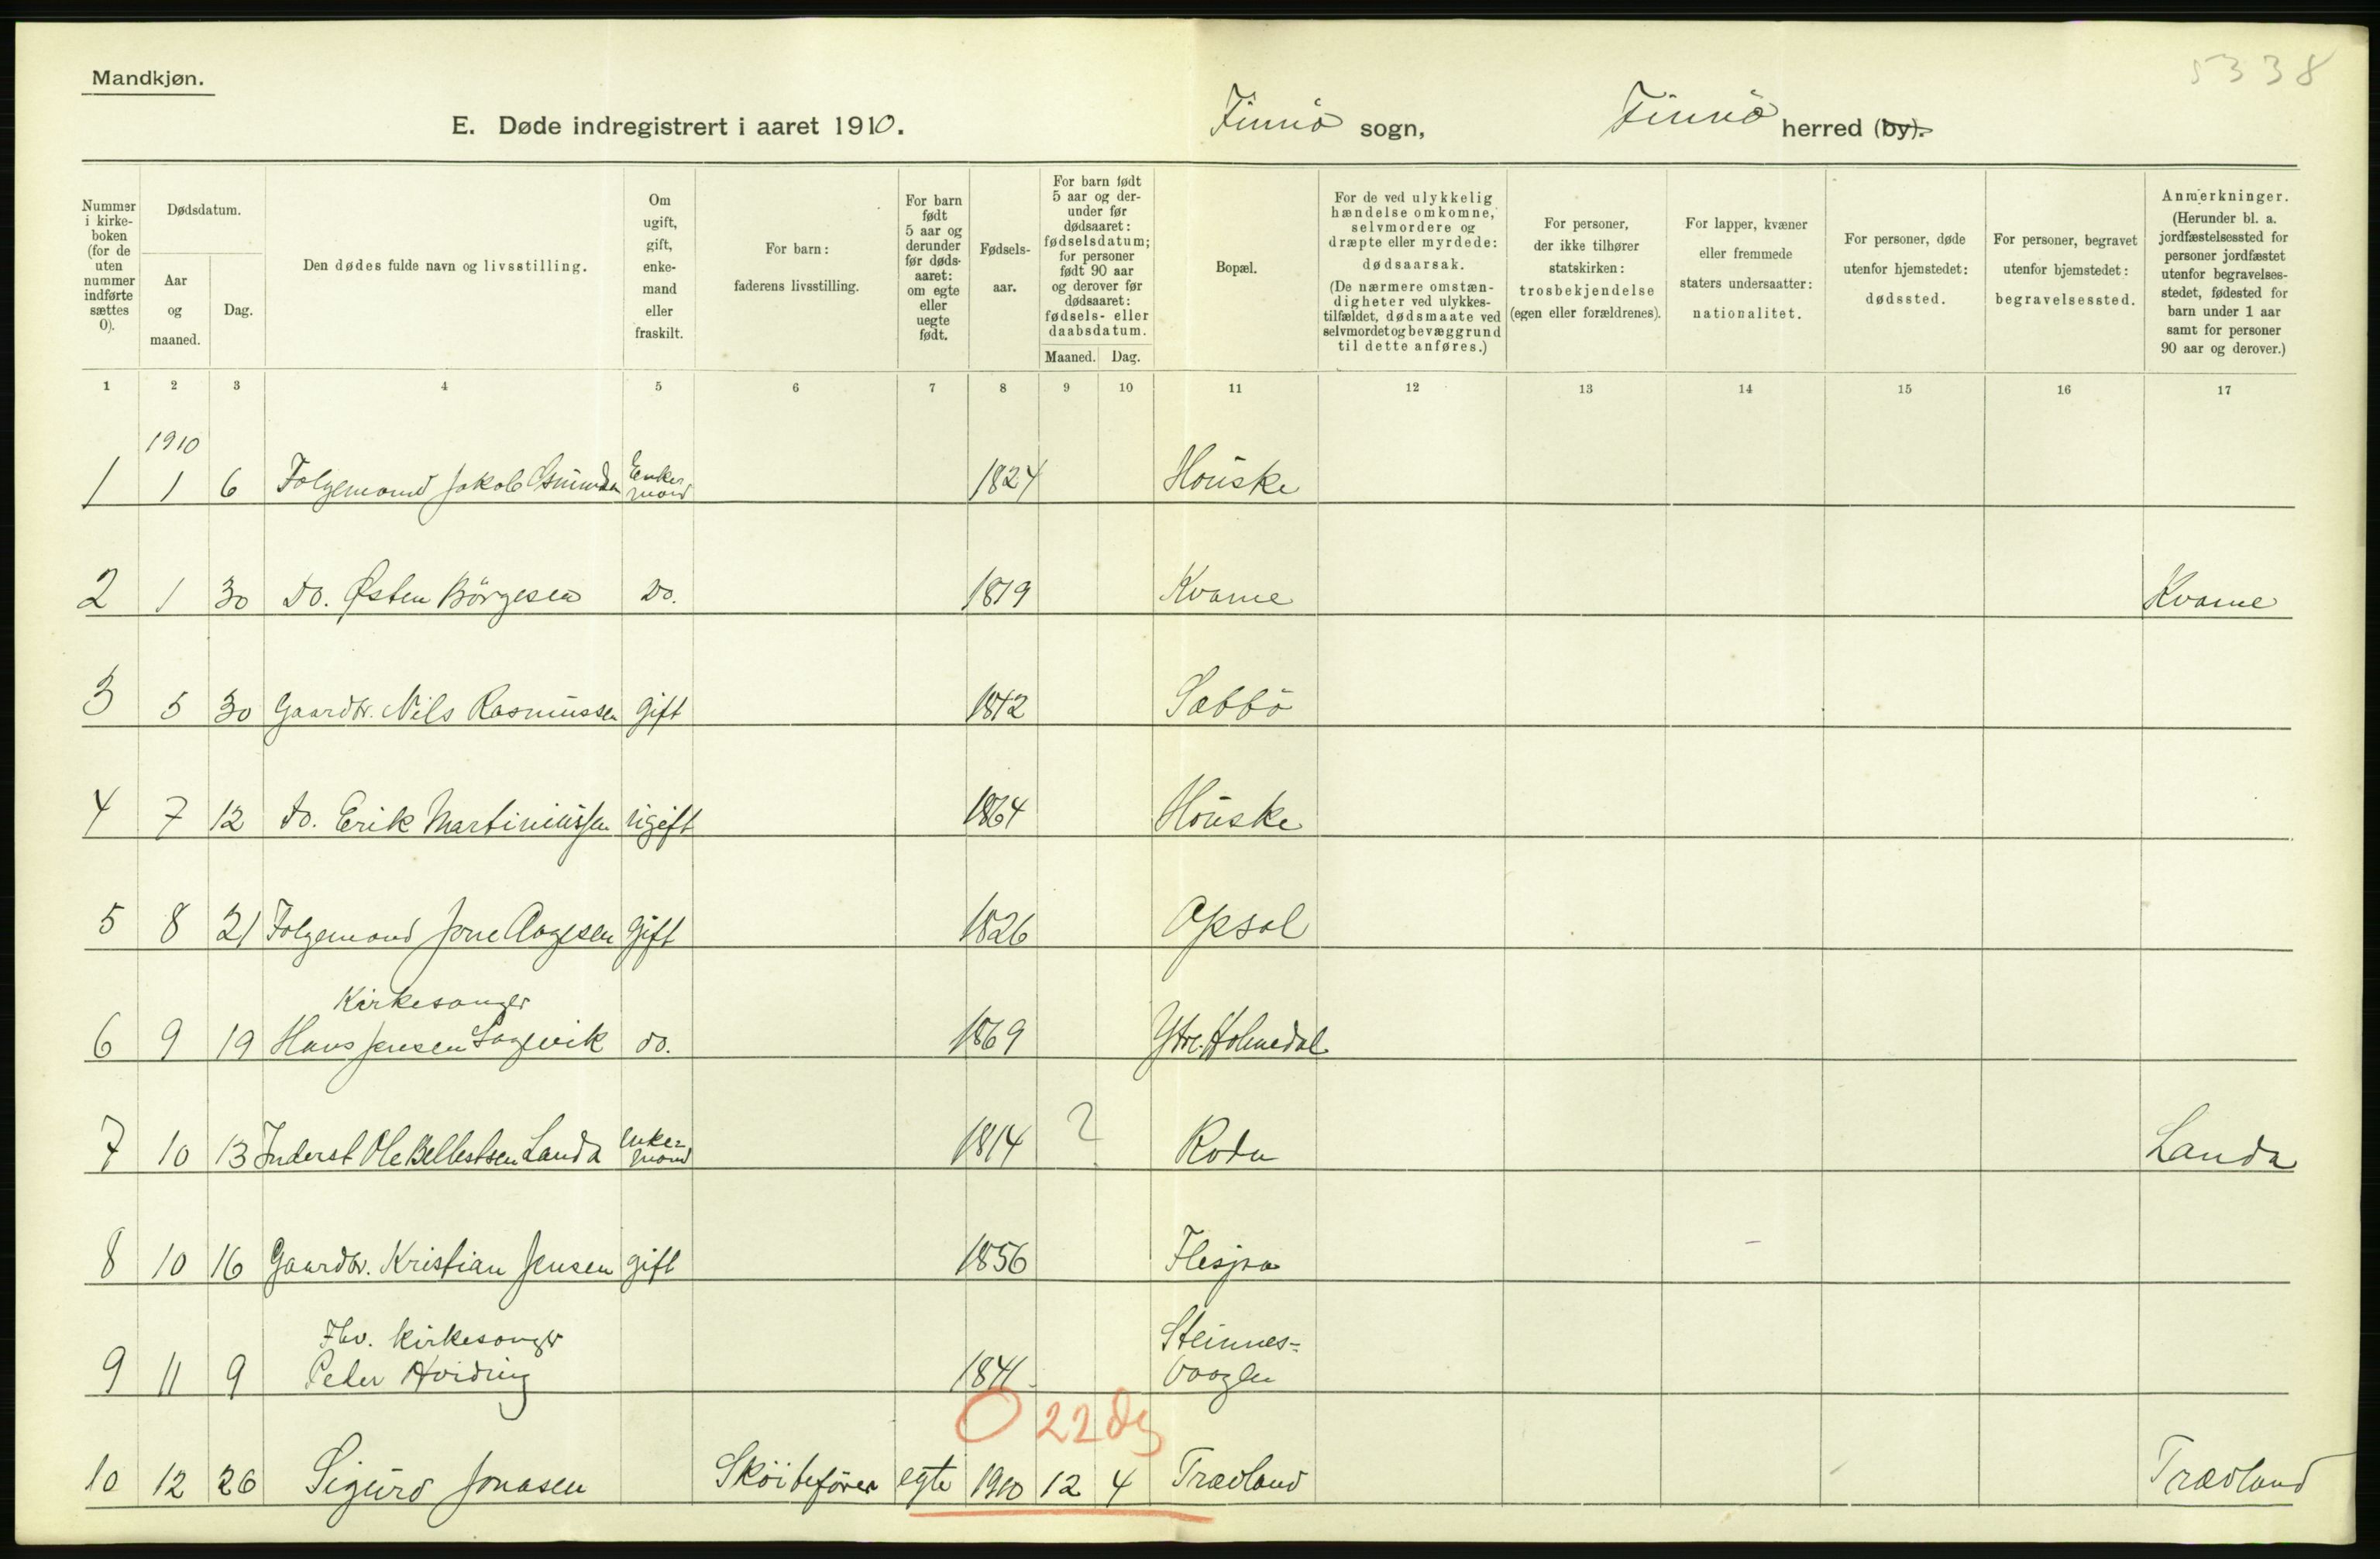 5338
Mandkjøn.
E. Døde indregistrert i aaret 1910. Finnö sogn, Finnö herred (by).
Nummer i kirke-boken (for de uten nummer indførte sættes 0).
Dødsdatum.
Aar og maaned.
Dag.
Den dødes fulde navn og livsstilling.
Om ugift, gift, enke-mand eller fraskilt.
For barn: faderens livsstilling.
For barn født 5 aar og derunder før døds-aaret: om egte eller uegte født.
Fødsels-aar.
For barn født 5 aar og der-under før dødsaaret: fødselsdatum; for personer født 90 aar og derover før dødsaaret: fødsels- eller daabsdatum.
Maaned. Dag.
Bopæl.
For de ved ulykkelig hændelse omkomne, selvmordere og dræpte eller myrdede: dødsaarsak.
(De nærmere omstæn-digheter ved ulykkes-tilfældet, dødsmaate ved selvmordet og bevæggrund til dette anføres.)
For personer, der ikke tilhører statskirken: trosbekjendelse (egen eller forældrenes).
For lapper, kvæner eller fremmede staters undersaatter: nationalitet.
For personer, døde utenfor hjemstedet: dødssted.
For personer, begravet utenfor hjemstedet: begravelsessted.
Anmerkninger.
(Herunder bl. a. jordfæstelsessted for personer jordfæstet utenfor begravelses-stedet, fødested for barn under 1 aar samt for personer 90 aar og derover.)
1 2 3 4 5 6 7 8 9 10 11 12 13 14 15 16 17
1910
1 1 6 Folgemand Jakob Enke-mand 1824 Houske
2 1 30 do. Østen Börgesen do. 1819 Kvame Kvame
3 5 30 Gaardbr. Nils Rasmussen gift 1842 Sæbbö
4 7 12 do. Erik Martiniussen ugift 1864 Houske
5 8 21 Folgemand Jone Aagesen gift 1826 Opsal
Kirkesanger
6 9 19 Hans Jensen Lagevik do. 1869 Ytre Holmedal
7 10 13 Inderst Ole Landa enke-mand 1814 ? Landa
8 10 16 Gaardbr. Kristian Jensen gift 1856 Flesjaa
Fhv. kirkesanger Steinnes-
9 11 9 Peder Hviding 1841 vaagen
0 22 dg
10 12 26 Sigurd Jonasen Sköitefører egte 1910 12 4 Trædland Trædland